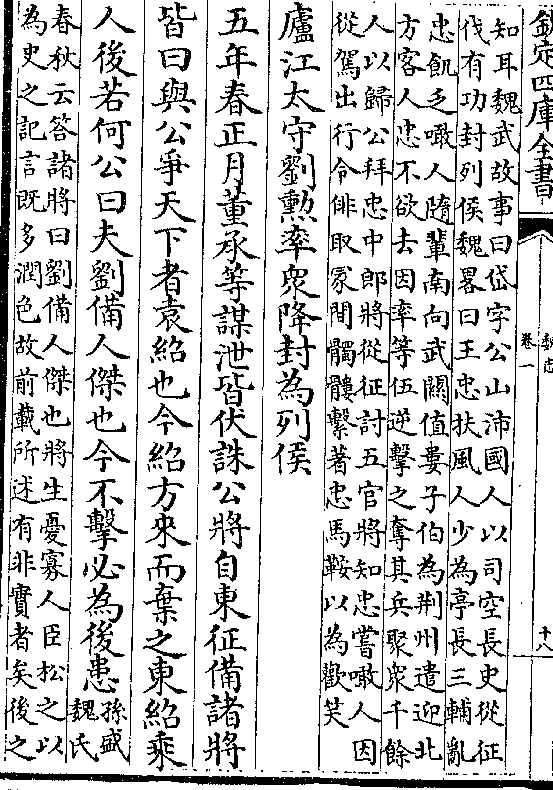 欽定四庫全書
魏志
卷一
十八
知耳魏武故事曰岱字公山沛國人以司空長史從征
伐有功封列侯魏畧曰王忠扶風人少為亭長三輔亂
忠飢乏噉人隨輩南向武關值婁子伯為荆州遣迎北
方客人忠不欲去因率等伍逆擊之奪其兵聚衆千餘
人以歸公拜忠中郎將從征討五官將知忠嘗噉人因
從駕出行令俳取冢間髑髏繫著忠馬鞍以為歡笑
廬江太守劉勲率衆降封為列侯
五年春正月董承等謀泄皆伏誅公將自東征備諸將
皆曰與公爭天下者袁紹也今紹方來而棄之東紹乘
人後若何公曰夫劉備人傑也今不擊必為後患
孫盛
魏氏
春秋云答諸將曰劉備人傑也將生憂寡人臣松之以
為史之記言既多潤色故前載所述有非實者矣後之